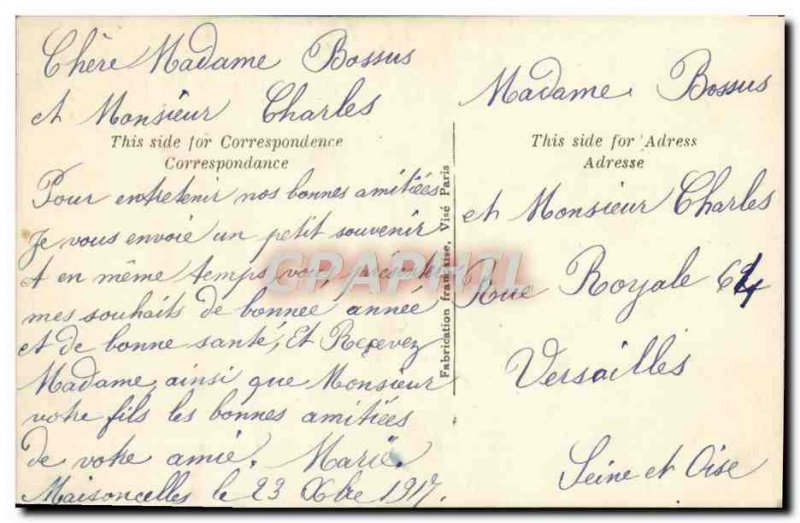 Chère Madame Bossus
et Monsieur Charles
This side for Correspondence
Correspondance
Pour entretenir nos bonnes amitiées
Je vous envoie un petit souvenir
et en même temps, vous présente
mes souhaits de bonnee année
et de bonne santé, Et Recevez
Madame, ainsi que Monsieur
votre fils les bonnes amitiées
de votre amie. Marie.
Maisoncelles le 23 Xbre 1917.
Fabrication française, Visé Paris
Madame Bossus
This side for Adress
Adresse
et Monsieur Charles
Rue Royale
Versailles
Seine et Oise
CPAPHIL